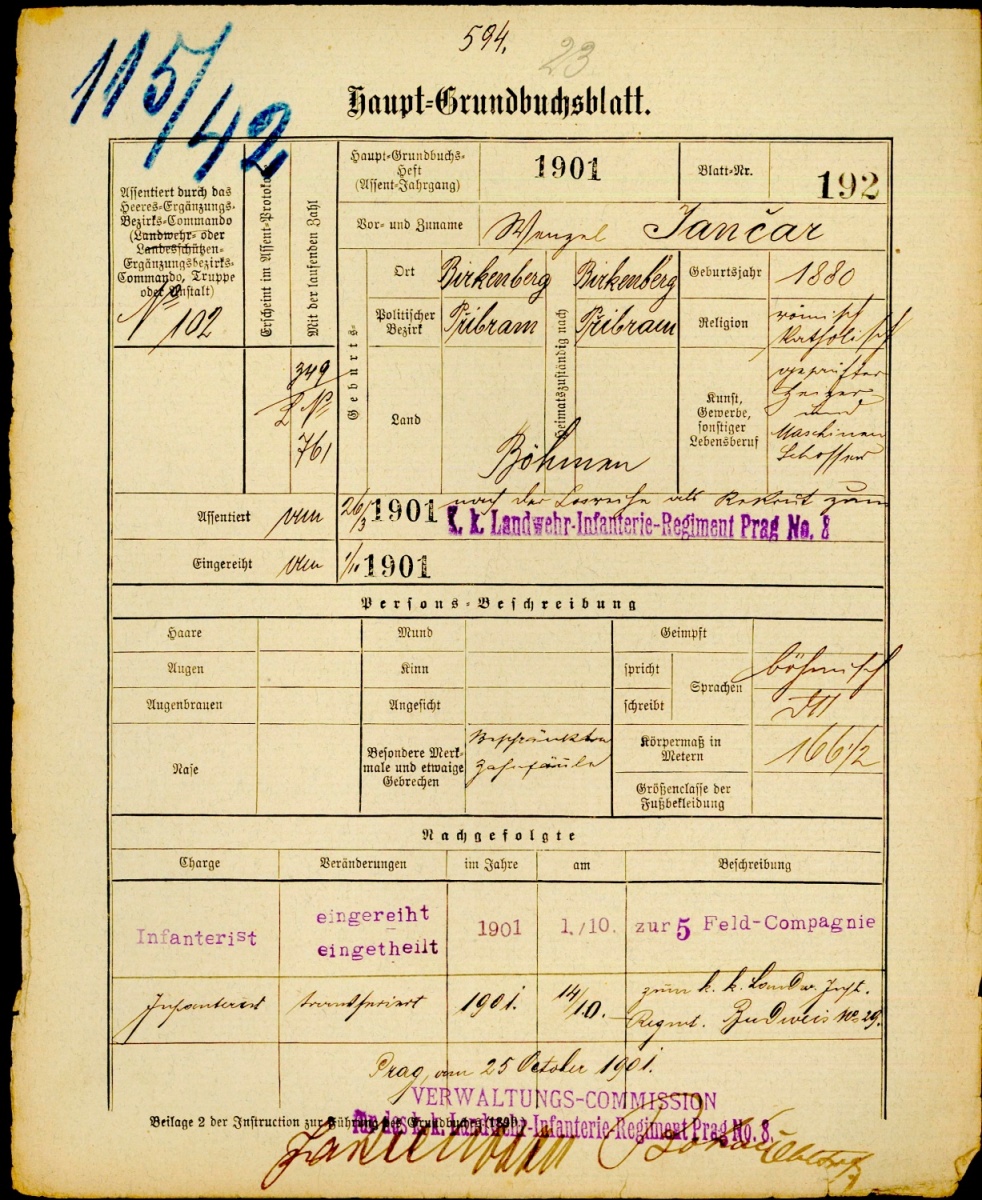 594.
23
115/42
Haupt=Grundbuchsblatt.
Assentiert durch das
Heeres-Ergänzungs-
Bezirks-Commando
(Landwehr- oder
Landesschützen-
Ergänzungsbezirks-
Commando, Truppe
oder Anstalt)
No
102
Erscheint im Assent-Protokolle
Mit der laufenden Zahl
349
761
Haupt-Grundbuchs-
Heft
(Assent-Jahrgang)
1901
Blatt-Nr.
192
Vor- und Zuname
Wenzel Jančar
Geburts-
Ort
Birkenberg
Politischer
Bezirk
Přibram
Land
Heimatszuständig nach
Birkenberg
Přibram
Böhmen
Geburtsjahr
1880
Religion
römisch
katholisch
Kunst,
Gewerbe,
sonstiger
Lebensberuf
geprüfter
Heizer
und
Maschinen
Schlosser
Assentiert am 26/3 1901 nach der Losreihe als Rekrut zum
k. k. Landwehr-Infanterie-Regiment Prag No. 8
Eingereiht am 1/10 1901
Persons=Beschreibung
Haare
Augen
Augenbrauen
Nase
Mund
Kinn
Angesicht
Besondere Merk-
male und etwaige
Gebrechen
Beschränkte
Zahnfäule
Geimpft
spricht
schreibt
Sprachen
böhmisch
dtt
Körpermaß in
Metern
166 1/2
Größenclasse der
Fußbekleidung
Nachgefolgte
Charge Veränderungen im Jahre am Beschreibung
Infanterist eingereiht
eingetheilt 1901 1./10. zur 5 Feld-Compagnie
Infanterist transferiert 1901. 14/10. zum k. k. Landw. Inft.
Regmt. Budweis No 29.
Prag, am 25 October 1901.
VERWALTUNGS-COMMISSION
für das k. k. Landwehr-Infanterie-Regiment Prag No. 8.
Beilage 2 der Instruction zur Führung des Grundbuches